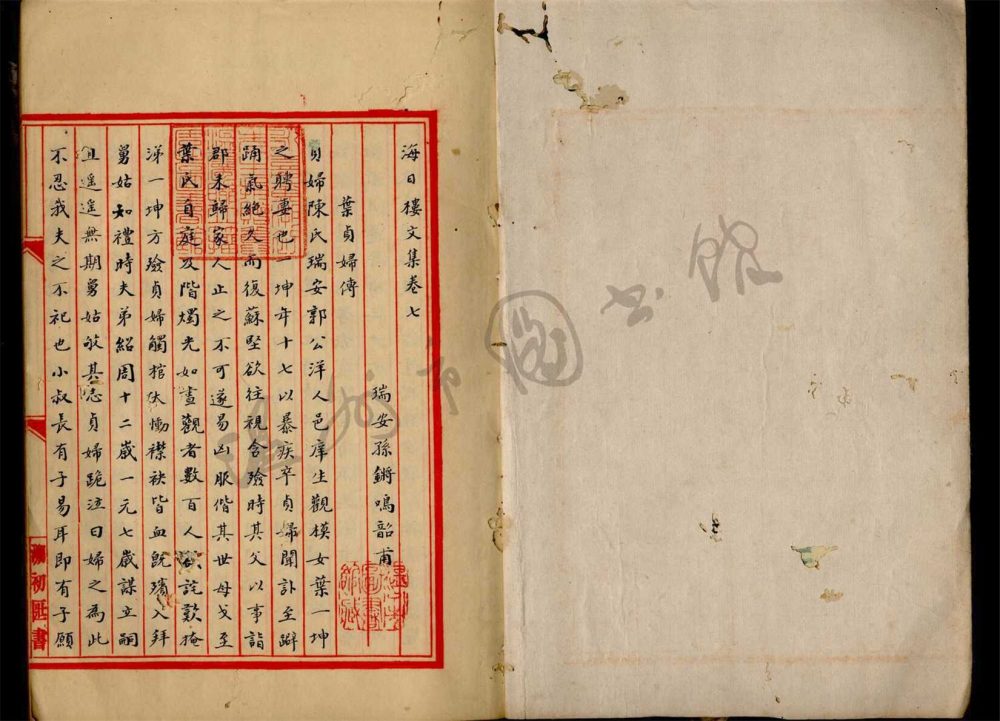 海日樓文集卷七
瑞安孫鏘鳴韶甫
葉貞婦傳
貞婦陳氏瑞安郭公洋人邑庠生觀模女葉一坤
之聘妻也一坤年十七以暴疾卒貞婦聞訃至擗
踊氣絕久而復蘇堅欲往視含殮時其父以事詣
郡未歸家人止之不可遂易凶服偕其世母戈至
葉氏自庭及階燭光如晝觀者數百人欷詫歎掩
涕一坤方殮貞婦觸棺大慟襟袂皆血既殯入拜
舅姑知禮時夫弟紹周十二歲一元七歲謀立嗣
且遥遥無期舅姑敬其志貞婦跪泣曰婦之為此
不忍我夫之不祀也小叔長有子易耳即有子願
初
書
市圖書館